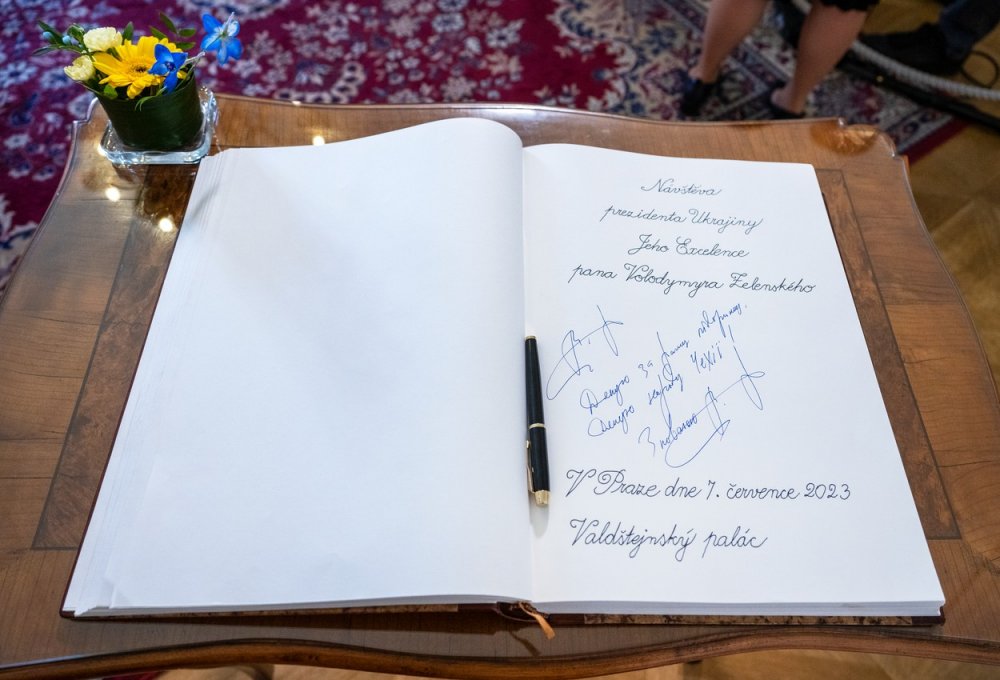 Návštěva
prezidenta Ukrajiny
Jeho Excelence
pana Volodymyra Zelenského
Дякую за вашу підтримку.
Дякую народу Чехії!
З повагою
V Praze dne 7. července 2023
Valdštejnský palác